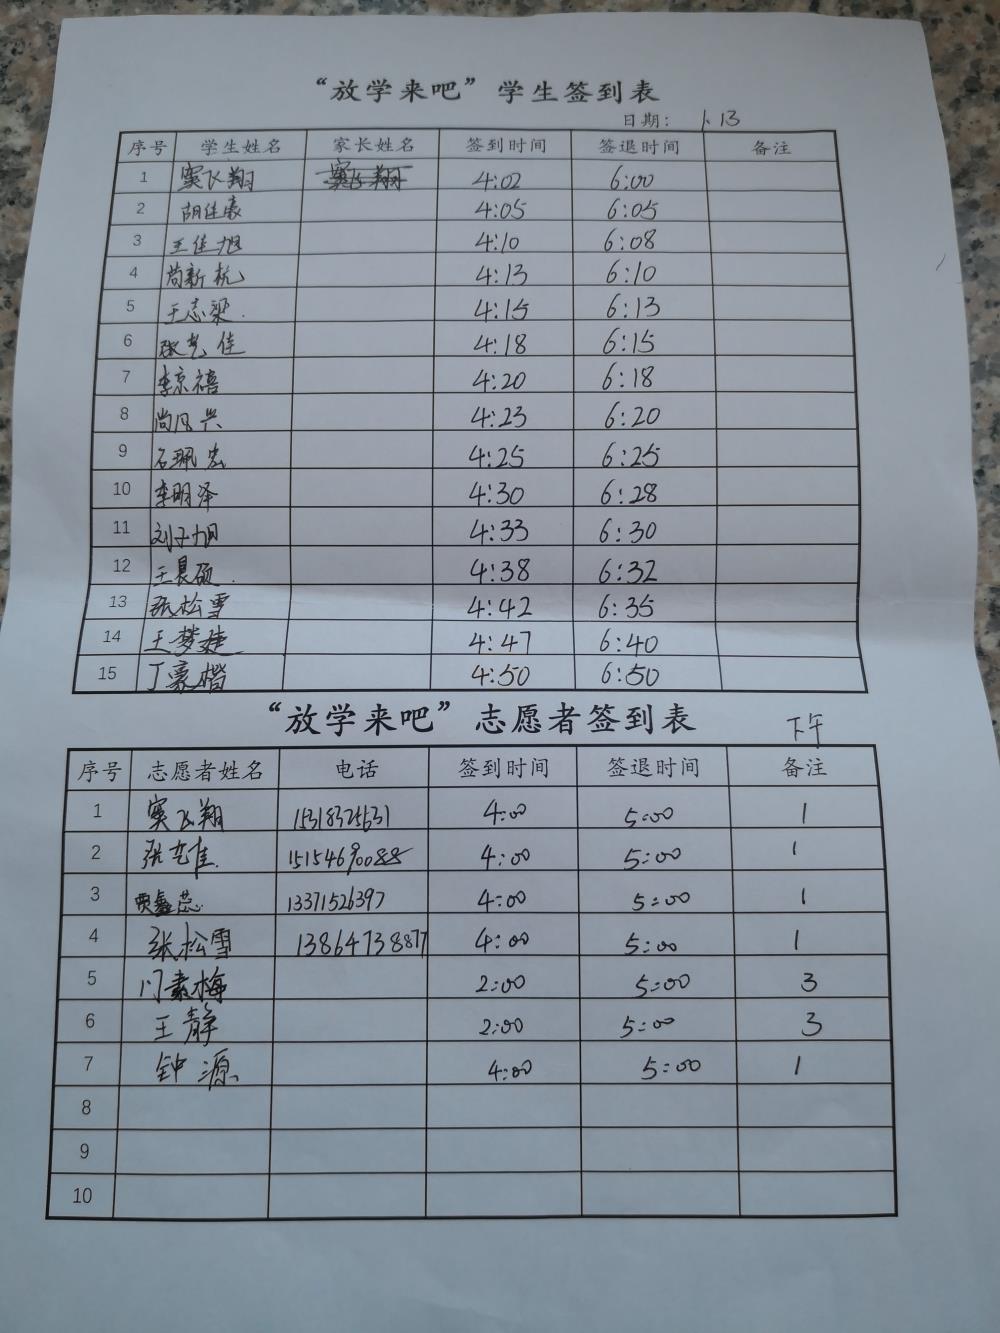 “放学来吧”学生签到表
日期: 1.13
序号 学生姓名 家长姓名 签到时间 签退时间 备注
1 窦飞翔 窦飞翔 4:02 6:00
2 胡佳豪 4:05 6:05
3 王佳旭 4:10 6:08
4 尚新杭 4:13 6:10
5 王志梁. 4:15 6:13
6 张艺佳 4:18 6:15
7 李京禧 4:20 6:18
8 尚凡兴 4:23 6:20
9 石珮宏 4:25 6:25
10 李明泽 4:30 6:28
11 刘子旭 4:33 6:30
12 王晨硕. 4:38 6:32
13 张松雪 4:42 6:35
14 王梦婕 4:47 6:40
15 丁豪楷 4:50 6:50
“放学来吧”志愿者签到表 下午
序号 志愿者姓名 电话 签到时间 签退时间 备注
1 窦飞翔 15318325631 4:00 5:00 1
2 张艺佳. 15154690088 4:00 5:00 1
3 贾鑫蕊. 13371526397 4:00 5:00 1
4 张松雪 13864738877 4:00 5:00 1
5 门素梅 2:00 5:00 3
6 王静 2:00 5:00 3
7 钟源 4:00 5:00 1
8
9
10